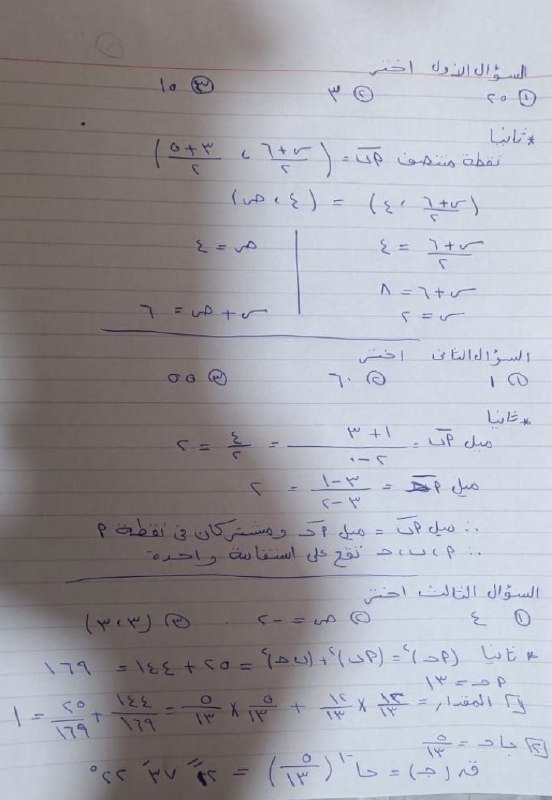 السؤال الأول اختر
① ٢٥ ② ٣ ③ ١٥
* ثانيا
نقطة منتصف اب = (س+٦/٢ ، ٣+٥/٢)
(س+٦/٢ ، ٤) = (٤ ، ص)
س+٦/٢ = ٤ ص = ٤
س+٦ = ٨
س = ٢ س + ص = ٦
السؤال الثانى اختر
① ١ ② ٦٠ ③ ٥٥
* ثانيا
ميل اب = ١+٣/٢-٠ = ٤/٢ = ٢
ميل = ٣-١/٣-٢ = ٢
∴ ميل اب = ميل ومشتركان فى نقطة ا
∴ ا ، ب ، حـ تقع على استقامة واحدة
السؤال الثالث اختر
① ٤ ② ص = -٢ ③ (٣،٣)
* ثانيا (احـ)² = (اب)² + (بحـ)² = ٢٥ + ١٤٤ = ١٦٩
احـ = ١٣
١] المقدار = ١٢/١٣ × ١٢/١٣ + ٥/١٣ × ٥/١٣ = ١٤٤/١٦٩ + ٢٥/١٦٩ = ١
٢] جا حـ = ٥/١٣
ق(حـ) = جا⁻¹(٥/١٣) = ٣٧ ٢٢°